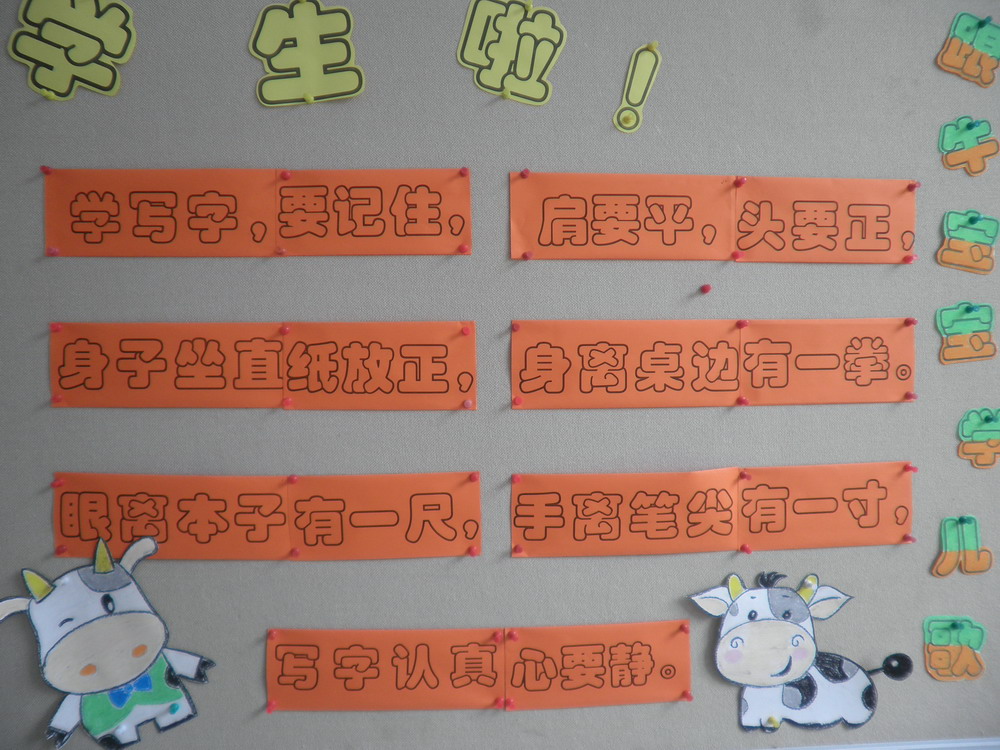 学生啦！
学写字，要记住，
肩要平，头要正，
身子坐直纸放正，
身离桌边有一拳。
眼离本子有一尺，
手离笔尖有一寸，
写字认真心要静。
跟牛宝宝学儿歌